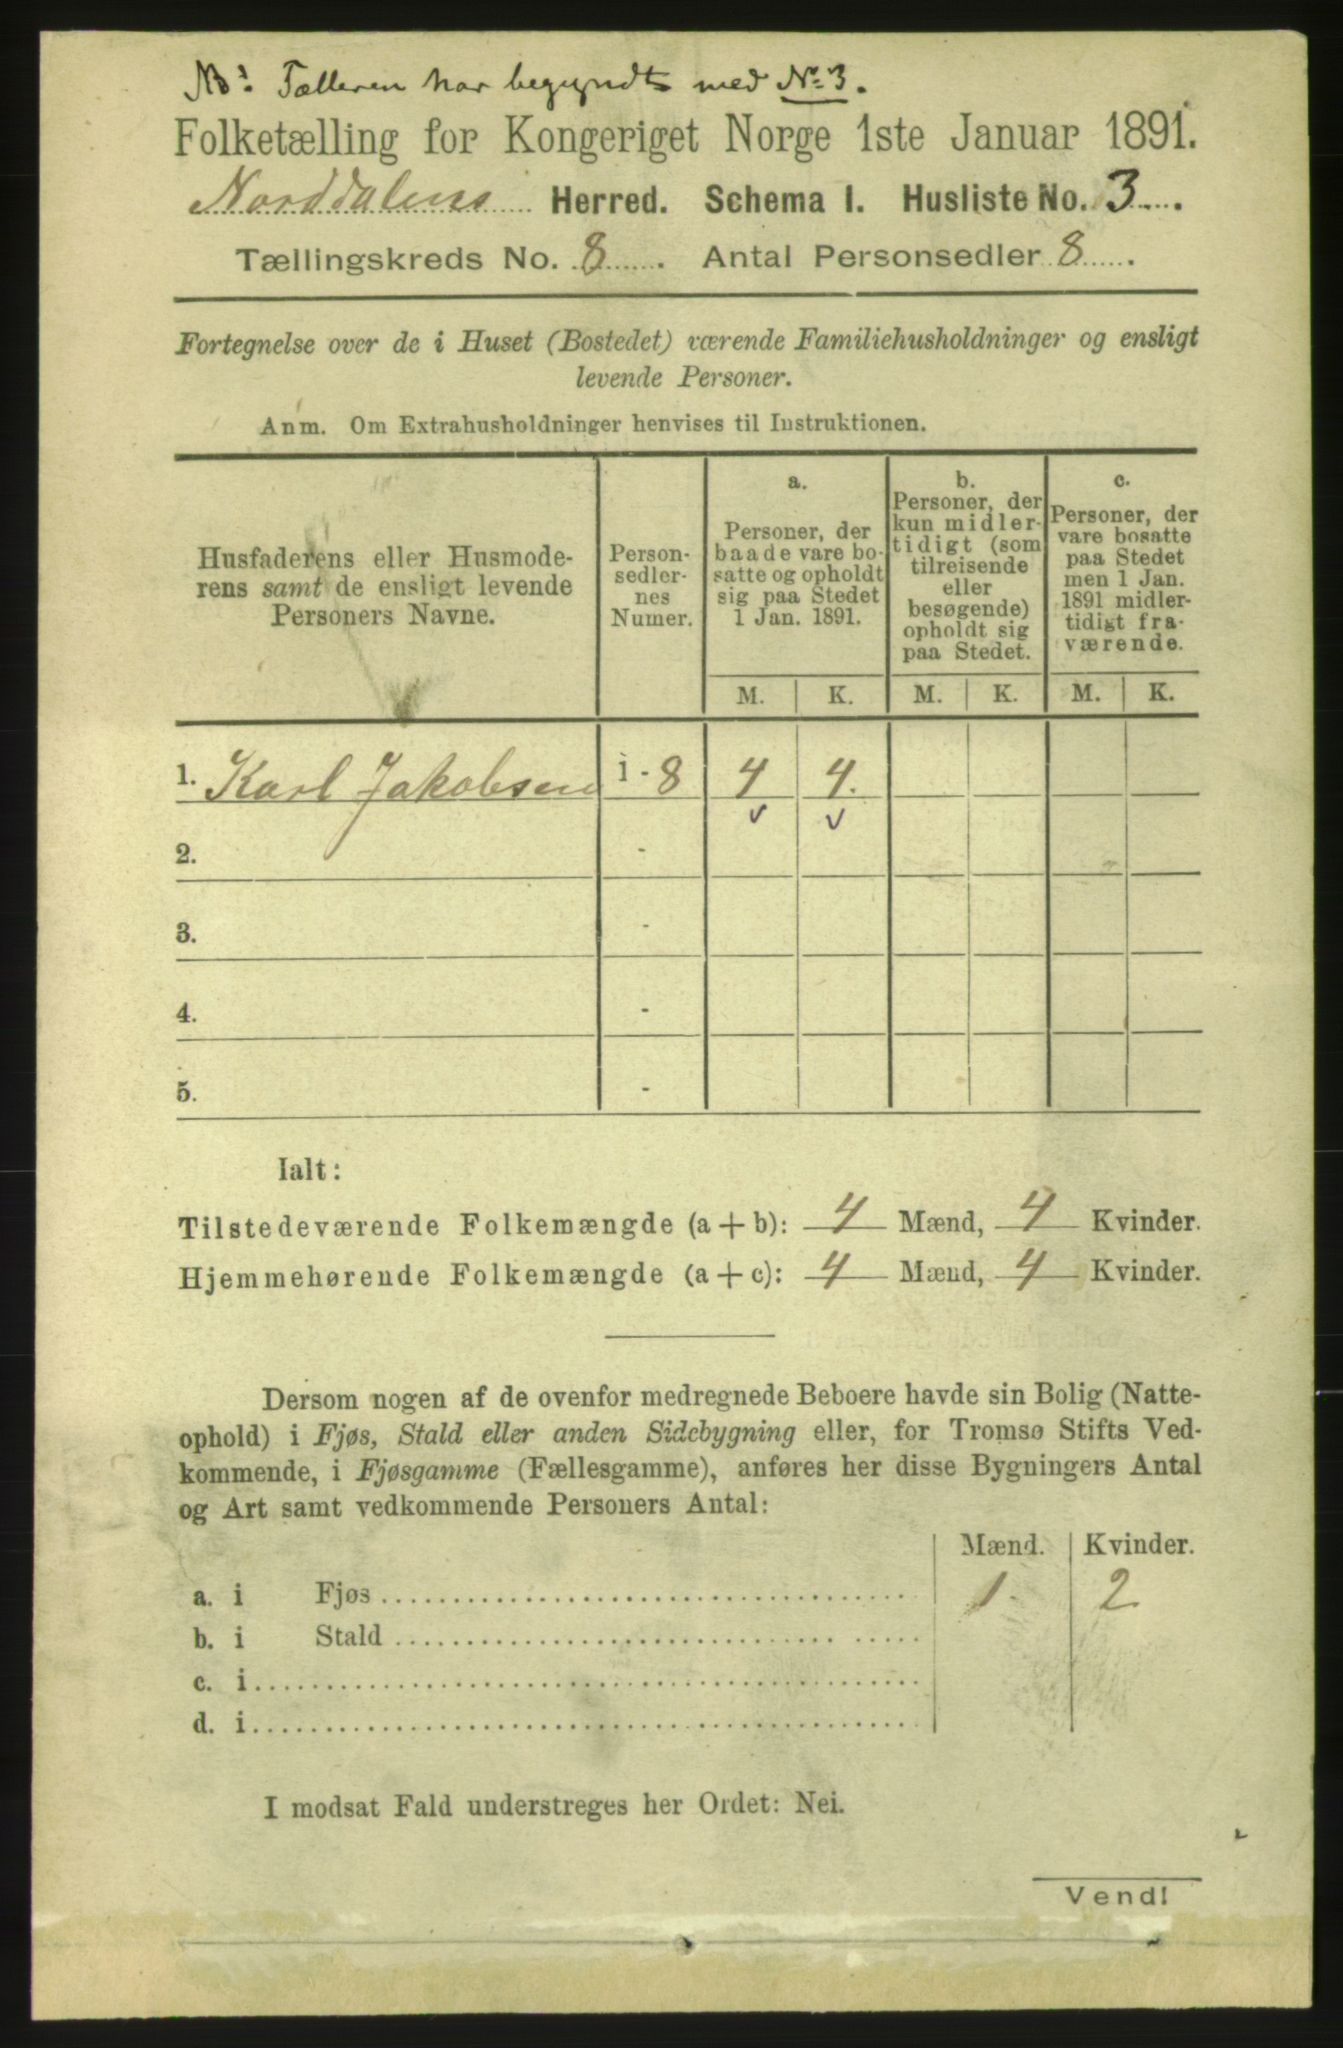 NB: Tælleren har begyndt med No 3.
Folketælling for Kongeriget Norge 1ste Januar 1891.
Norddalens Herred. Schema I. Husliste No. 3.
Tællingskreds No. 8. Antal Personsedler 8.
Fortegnelse over de i Huset (Bostedet) værende Familiehusholdninger og ensligt
levende Personer.
Anm. Om Extrahusholdninger henvises til Instruktionen.
Husfaderens eller Husmode-
rens samt de ensligt levende
Personers Navne.
Person-
sedler-
nes
Numer.
a.
Personer, der
baade vare bo-
satte og opholdt
sig paa Stedet
1 Jan. 1891.
b.
Personer, der
kun midler-
tidigt (som
tilreisende
eller
besøgende)
opholdt sig
paa Stedet.
c.
Personer, der
vare bosatte
paa Stedet
men 1 Jan.
1891 midler-
tidigt fra-
værende.
M. K. M. K. M. K.
1. Karl Jakobsen 1 - 8 4 4.
2. -
3. -
4. -
5. -
Ialt:
Tilstedeværende Folkemængde (a + b): 4 Mænd, 4 Kvinder.
Hjemmehørende Folkemængde (a + c): 4 Mænd, 4 Kvinder.
Dersom nogen af de ovenfor medregnede Beboere havde sin Bolig (Natte-
ophold) i Fjøs, Stald eller anden Sidebygning eller, for Tromsø Stifts Ved-
kommende, i Fjøsgamme (Fællesgamme), anføres her disse Bygningers Antal
og Art samt vedkommende Personers Antal:
Mænd. Kvinder.
a. i Fjøs 1 2
b. i Stald
c. i
d. i
I modsat Fald understreges her Ordet: Nei.
Vend!